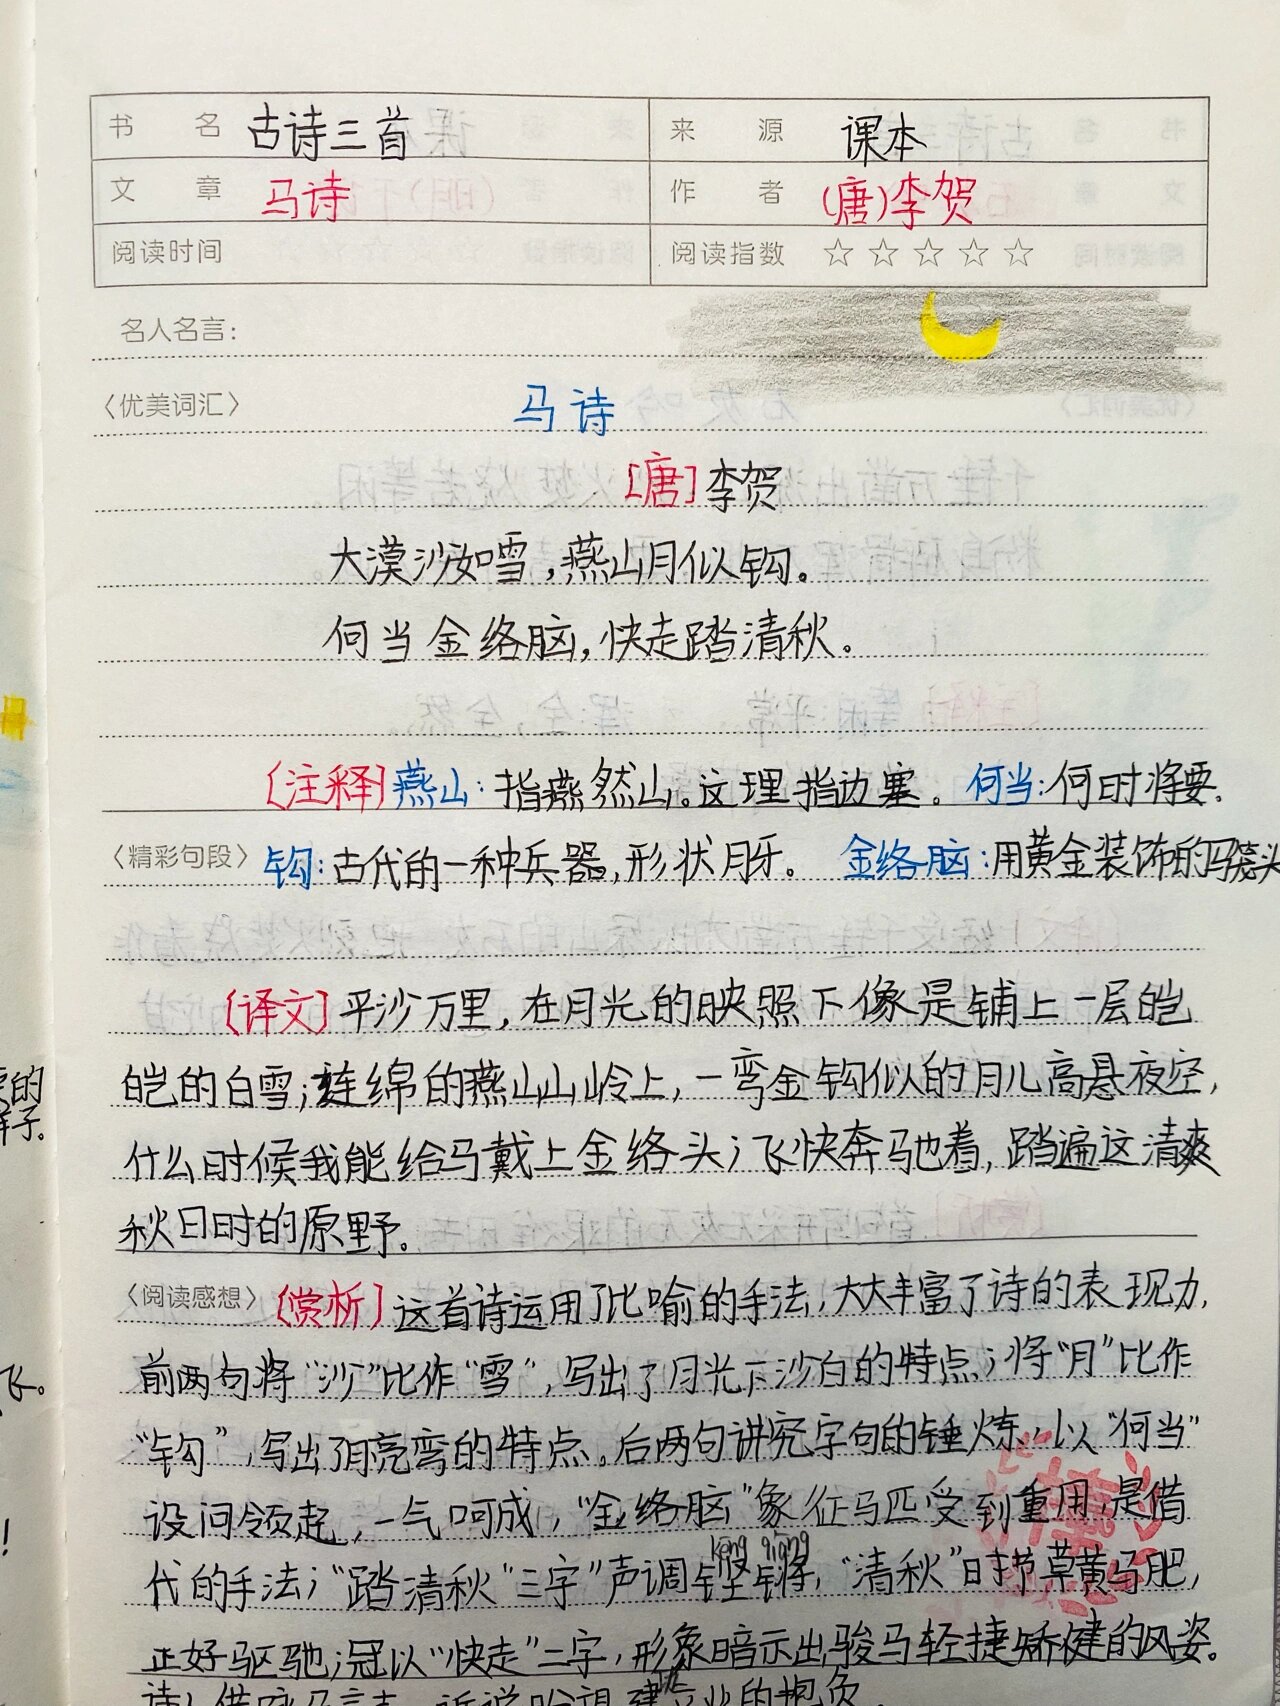 书名 古诗三首 来源 课本
文章 马诗 作者 (唐)李贺
阅读时间 阅读指数 ☆☆☆☆☆
名人名言:
〈优美词汇〉 马诗
[唐]李贺
大漠沙如雪,燕山月似钩。
何当金络脑,快走踏清秋。
[注释]燕山:指燕然山。这理指边塞。何当:何时将要.
〈精彩句段〉 钩:古代的一种兵器,形状月牙。 金络脑:用黄金装饰的马笼头
[译文]平沙万里,在月光的映照下像是铺上一层皑
皑的白雪;连绵的燕山山岭上,一弯金钩似的月儿高悬夜空,
什么时候我能给马戴上金络头;飞快奔驰着,踏遍这清爽
秋日时的原野。
〈阅读感想〉 [赏析]这首诗运用了比喻的手法,大大丰富了诗的表现力,
前两句将“沙”比作“雪”,写出了月光下沙白的特点;将“月”比作
“钩”,写出了月亮弯的特点。后两句讲究字句的锤炼,以“何当”
设问领起,一气呵成,“金络脑”象征马匹受到重用,是借
kēng qiāng
代的手法;“踏清秋”三字”声调铿锵,“清秋”时节草黄马肥,
正好驱驰;冠以“快走”二字,形象暗示出骏马轻捷矫健的风姿。
的
样子。
飞。
!